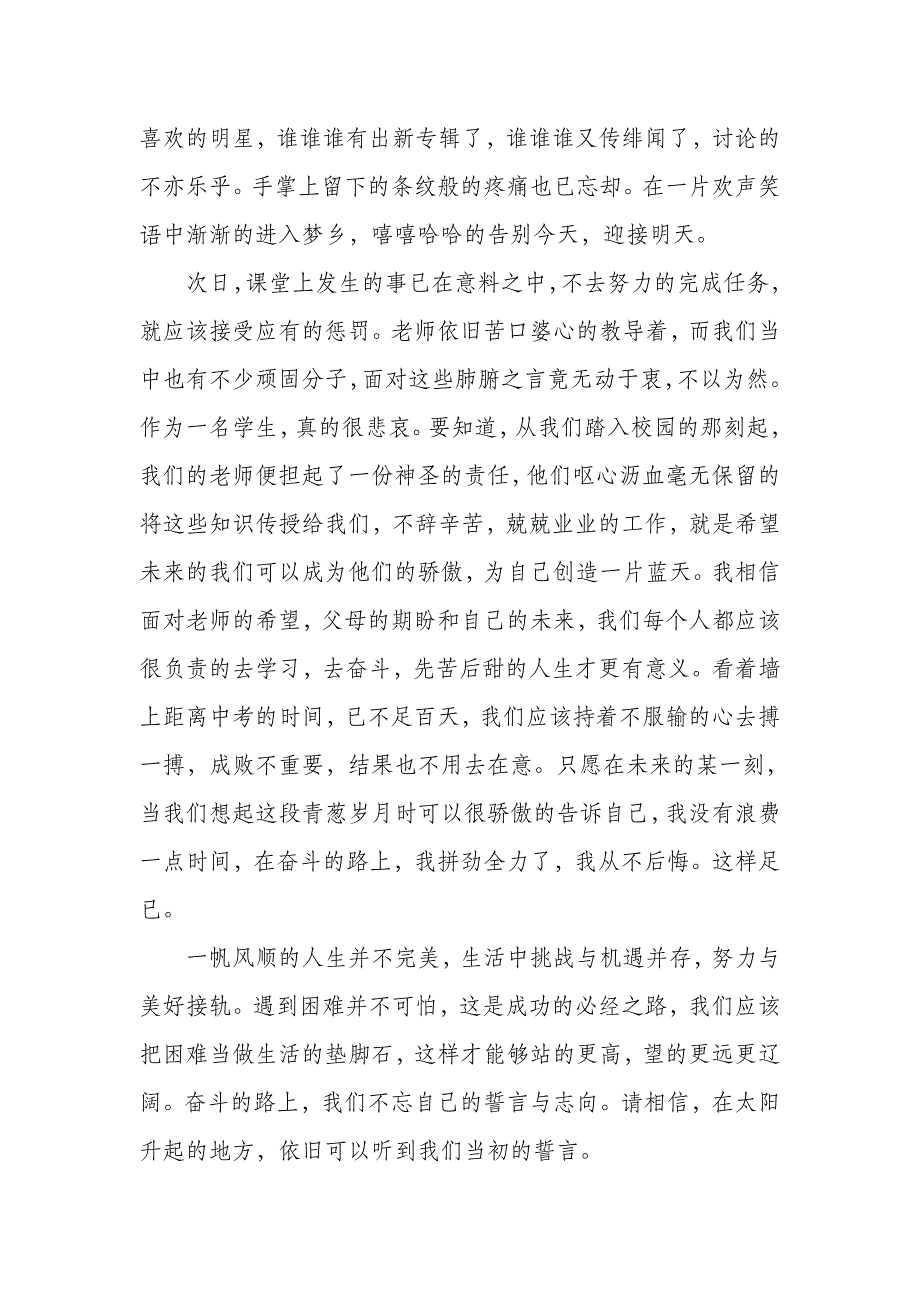 喜欢的明星，谁谁谁有出新专辑了，谁谁谁又传绯闻了，讨论的
不亦乐乎。手掌上留下的条纹般的疼痛也已忘却。在一片欢声笑
语中渐渐的进入梦乡，嘻嘻哈哈的告别今天，迎接明天。
次日，课堂上发生的事已在意料之中，不去努力的完成任务，
就应该接受应有的惩罚。老师依旧苦口婆心的教导着，而我们当
中也有不少顽固分子，面对这些肺腑之言竟无动于衷，不以为然。
作为一名学生，真的很悲哀。要知道，从我们踏入校园的那刻起，
我们的老师便担起了一份神圣的责任，他们呕心沥血毫无保留的
将这些知识传授给我们，不辞辛苦，兢兢业业的工作，就是希望
未来的我们可以成为他们的骄傲，为自己创造一片蓝天。我相信
面对老师的希望，父母的期盼和自己的未来，我们每个人都应该
很负责的去学习，去奋斗，先苦后甜的人生才更有意义。看着墙
上距离中考的时间，已不足百天，我们应该持着不服输的心去搏
一搏，成败不重要，结果也不用去在意。只愿在未来的某一刻，
当我们想起这段青葱岁月时可以很骄傲的告诉自己，我没有浪费
一点时间，在奋斗的路上，我拼劲全力了，我从不后悔。这样足
已。
一帆风顺的人生并不完美，生活中挑战与机遇并存，努力与
美好接轨。遇到困难并不可怕，这是成功的必经之路，我们应该
把困难当做生活的垫脚石，这样才能够站的更高，望的更远更辽
阔。奋斗的路上，我们不忘自己的誓言与志向。请相信，在太阳
升起的地方，依旧可以听到我们当初的誓言。